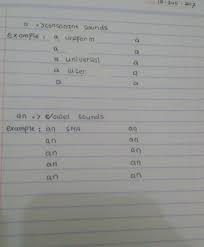 a => consonant sounds
example : a uniform a
a a
a universal a
a user a
a a
an => vowel sounds
example : an SMA an
an an
an an
an an
an an